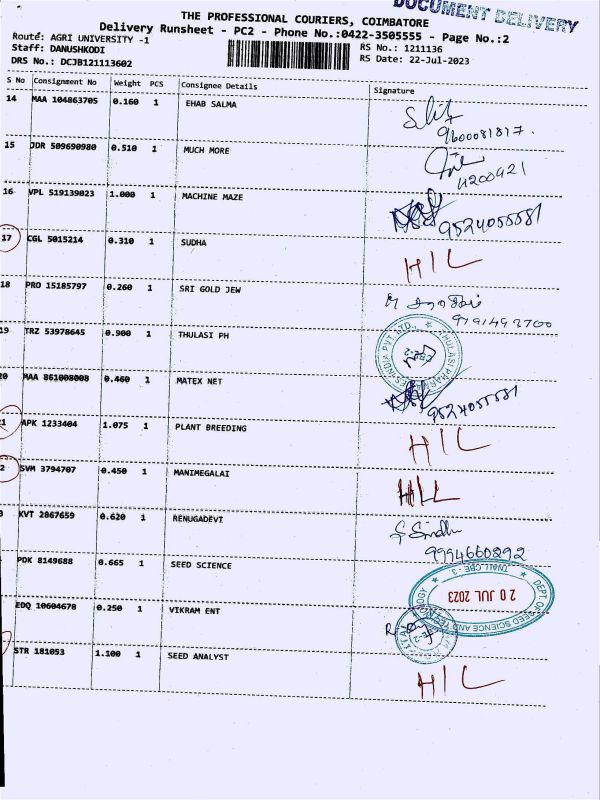 DOCUMENT DELIVERY
THE PROFESSIONAL COURIERS, COIMBATORE
Delivery Runsheet - PC2 - Phone No.:0422-3505555 - Page No.:2
Route: AGRI UNIVERSITY -1
RS No.: 1211136
Staff: DANUSHKODI
RS Date: 22-Jul-2023
DRS No.: DCJB121113602
S No Consignment No Weight PCS Consignee Details Signature
14 MAA 104863705 0.160 1 EHAB SALMA
9600081817.
15 JDR 509690980 0.510 1 MUCH MORE
4200421
16 VPL 519139023 1.000 1 MACHINE MAZE
9524055581
17 CGL 5015214 0.310 1 SUDHA HIL
18 PRO 15185797 0.260 1 SRI GOLD JEW
19 TRZ 53978645 0.900 1 THULASI PH
20 MAA 861008008 0.460 1 MATEX NET
9524055581
1 APK 1233404 1.075 1 PLANT BREEDING HIL
2 SVM 3794707 0.450 1 MANIMEGALAI HIL
KVT 2867659 0.620 1 RENUGADEVI G Sindhu
9994660292
PDK 8149688 0.665 1 SEED SCIENCE
DEPT. OF SEED SCIENCE AND TECHNOLOGY
TNAU, CBE - 3
20 JUL 2023
EDQ 10604678 0.250 1 VIKRAM ENT
STR 181053 1.100 1 SEED ANALYST HIL